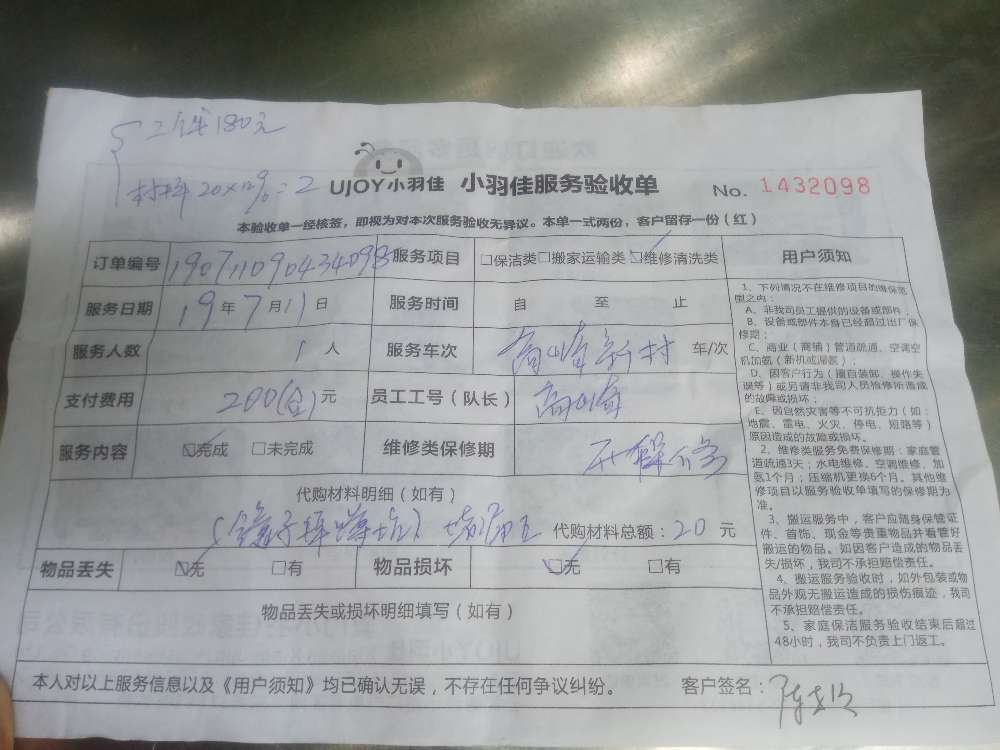 工钱180元
材料 20×10%=2
UJOY小羽佳 小羽佳服务验收单 No. 1432098
本验收单一经核签,即视为对本次服务验收无异议。本单一式两份,客户留存一份(红)
订单编号 服务项目 □保洁类□搬家运输类☑维修清洗类
服务日期 19年7月11日 服务时间 自 至 止
服务人数 1人 服务车次 车/次
支付费用 200(含)元 员工工号(队长)
服务内容 ☑完成 □未完成 维修类保修期 不保修
代购材料明细(如有)
代购材料总额:20元
物品丢失 ☑无 □有 物品损坏 ☑无 □有
物品丢失或损坏明细填写(如有)
本人对以上服务信息以及《用户须知》均已确认无误,不存在任何争议纠纷。 客户签名:
用户须知
1、下列情况不在维修项目的维保范
围之内:
A、非我司员工提供的设备或部件;
B、设备或部件本身已经超过出厂保
修期;
C、商业(商铺)管道疏通、空调空
机加氨(新机或滞裂);
D、因客户行为(擅自装卸、操作失
误等)或另请非我司人员检修所造成
的故障或损坏;
E、因自然灾害等不可抗拒力(如:
地震、雷电、火灾、停电、短路等)
原因造成的故障或损坏。
2、维修类服务免费保修期:家庭管
道疏通3天;水电维修、空调维修、加
氨1个月;压缩机更换6个月。其他维
修项目以服务验收单填写的保修期为
准。
3、搬运服务中,客户应随身保管证
件、首饰、现金等贵重物品并看管好
搬运的物品。如因客户造成的物品丢
失/损坏,我司不承担赔偿责任。
4、搬运服务验收时,如外包装或物
品外观无搬运造成的损伤痕迹,我司
不承担赔偿责任。
5、家庭保洁服务验收结束后超过
48小时,我司不负责上门返工。